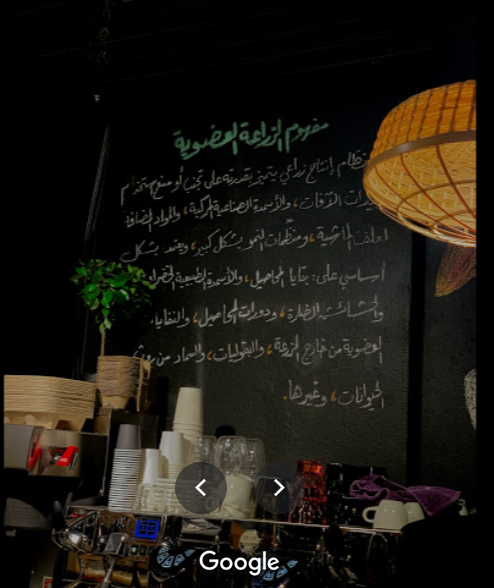 مفهوم الزراعة العضوية
نظام إنتاج زراعي يتميز بقدرته على تجنب أو منع استخدام
الآفات، والأسمدة الصناعية المركبة، والمواد المضافة
لعلف الماشية، ومنظمات النمو بشكل كبير، ويعتمد بشكل
أساسي على: بقايا المحاصيل، والأسمدة الطبيعية الخضراء
والحشائش الضارة، ودورات المحاصيل، والنفايات
العضوية من خارج المزرعة، والبقوليات، والسماد من روث
الحيوانات، وغيرها.
Google